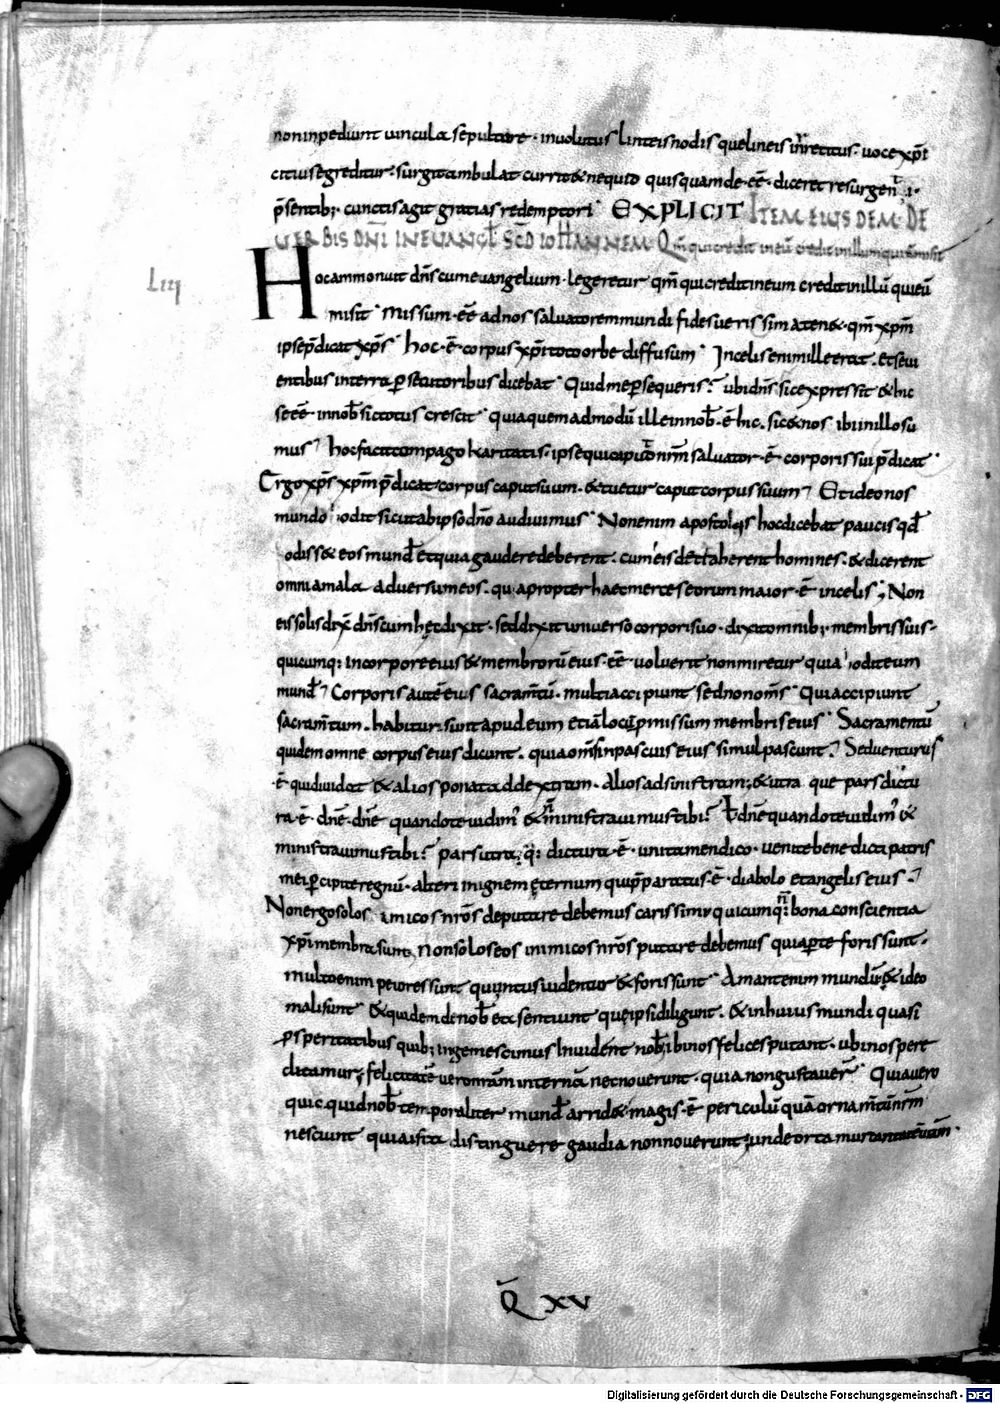 non inpediunt uincula sepulturae · inuolutus linteis nodis que lineis inretitus · uoce xp̄i
citius egreditur · surgit ambulat currit & nequid quisquam de · eē · diceret resurgent̄i ·
p̄sentib; cunctis agit gratias redemptori · EXPLICIT ITEM EIUSDEM · DE
UERBIS DN̄I IN EUANGL̄ SCD̄ IOHANNEM Qm̄ qui credit in eū credit in illum qui misit
Liii
Hoc ammonuit dn̄s cum euangelium · legeretur qm̄ qui credit in eum credit in illū qui eū
misit · Missum · eē ad nos saluatorem mundi fides uerissima tenet · qm̄ xp̄m
ipse p̄dicat xp̄s · hoc · ē · corpus xp̄i toto orbe diffusum · In celis enim ille erat · et seui
entibus in terra p̄secutoribus dicebat · Quid me persequeris? ubi dn̄s sic expressit & hic
se eē · in nob̄ sic totus crescit · quia quemadmodū ille in nob̄ · ē hic · sic & nos ibi in illo su
mus · hoc facit compago karitatis · ipse qui caput nr̄m saluator · ē · corporis sui p̄dicat ·
Ergo xp̄s xp̄m p̄dicat corpus caput suum · & tuetur caput corpus suum · Et ideo nos
mundo odit sicut ab ipso dn̄o audiuimus · Non enim apostolis hoc dicebat paucis qd̄
odisset eos mund̄ et quia gaudere deberent · cum eis detraherent homines · & dicerent
omnia mala aduersum eos · quapropter haec merces eorum maior · ē in celis; Non
eis solis dix̄ dn̄s cum hęc dixit · sed dixit uniuerso corpori suo · dixit omnib; membris suis ·
quicumq; in corpore eius & membrorū eius · eē · uoluerit non miretur quia odit eum
mund̄ · Corporis autē eius sacramt̄ū · multi accipiunt sed non om̄s · Qui accipiunt
sacram̄tum · habituri sunt apud eum etiā locū p̄missum membris eius · Sacramentū
quidem omne corpus eius dicunt · quia om̄s in pascuis eius simul pascunt · Sed uenturus
· ē · qui diuidat & alios ponat ad dextram · alios ad sinistram; & utra que pars dictu
ra · ē · dn̄e · dn̄e quando te uidim' & ministrauimus tibi? ł dn̄e quando te uidim' &
ministrauimus tibi? pars utraq; dictura · ē · uni tamen dico · uenite benedicti patris
mei p̄cipite regnū · alteri in ignem ęternum qui p̄paratus · ē · diabolo et angelis eius ·
Non ergo solos inimicos nr̄os deputare debemus carissimi quicumq; bona conscientia
xp̄i membra sunt, non solos eos inimicos nr̄os putare debemus qui ap̄te foris sunt ·
multo enim peiores sunt qui intus uidentur & foris sunt · Amant enim mundū & ideo
mali sunt · & quidem de nob̄ ea sentiunt quę ipsi diligunt · & in huius mundi quasi
p̄speritatibus quib; ingemescimus Inuident nob̄; ibi nos felices putant · ubi nos peri
clitamur; felicitatē uero nr̄am internā nec nouerunt · quia non gustauer̄ · Quia uero
quicquid nob̄ temporaliter mund̄ arridet magis · ē periculū quā ornam̄tū nr̄m
nesciunt quia ista distinguere gaudia non nouerunt;
Q XV
Digitalisierung gefördert durch die Deutsche Forschungsgemeinschaft - DFG